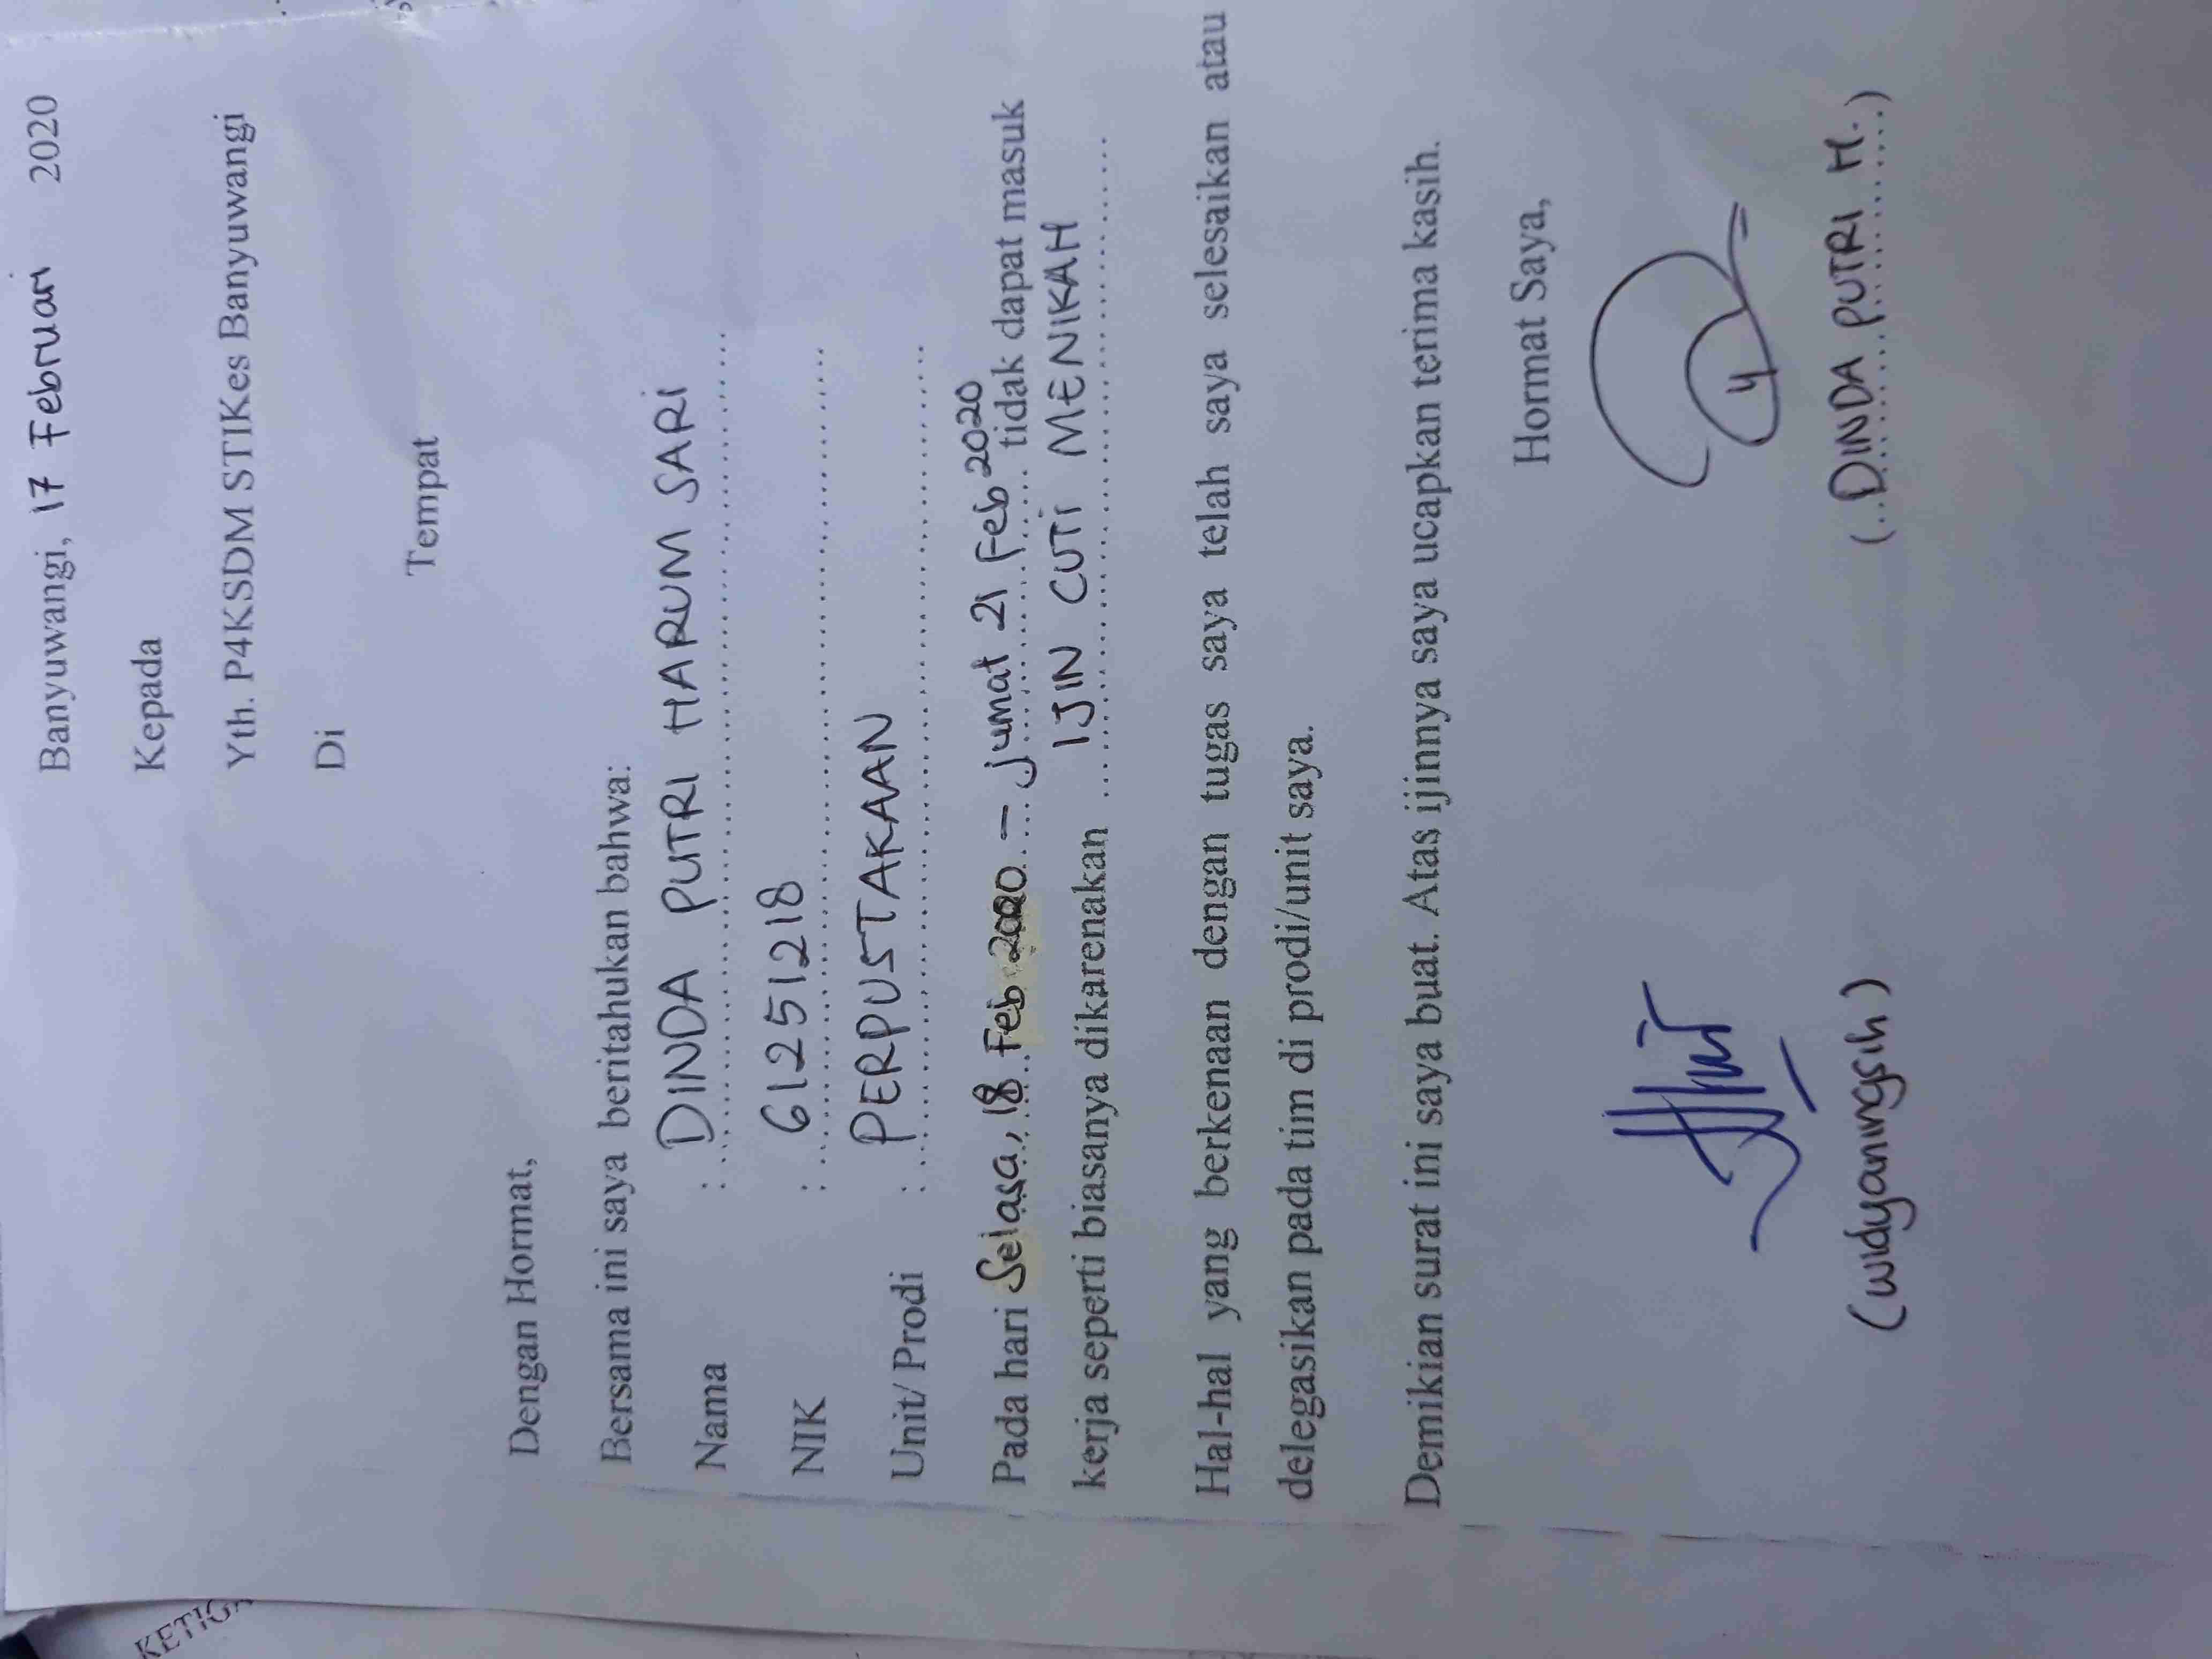 Banyuwangi, 17 Februari 2020
Kepada
Yth. P4KSDM STIKes Banyuwangi
Di
Tempat
Dengan Hormat,
Bersama ini saya beritahukan bahwa:
Nama : DINDA PUTRI HARUM SARI
NIK : 61251218
Unit/ Prodi : PERPUSTAKAAN
Pada hari Selasa, 18 Feb 2020 – jumat 21 Feb 2020 tidak dapat masuk
kerja seperti biasanya dikarenakan IJIN CUTI MENIKAH
Hal-hal yang berkenaan dengan tugas saya telah saya selesaikan atau
delegasikan pada tim di prodi/unit saya.
Demikian surat ini saya buat. Atas ijinnya saya ucapkan terima kasih.
Hormat Saya,
(widyaningsih) (DINDA PUTRI H.)